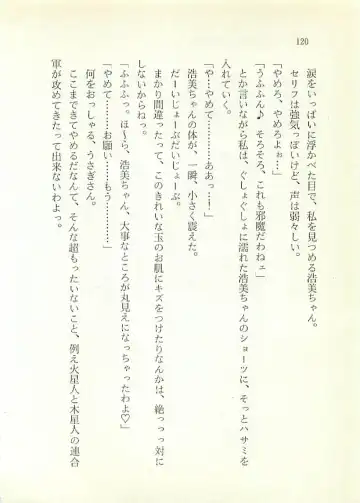 120
涙をいっぱいに浮かべた目で、私を見つめる浩美ちゃん。
セリフは強気っぽいけど、声は弱々しい。
「やめろ、やめろよぉ…」
「うふふん♪ そろそろ、これも邪魔だわねェ」
とか言いながら私は、ぐしょぐしょに濡れた浩美ちゃんのショーツに、そっとハサミを
入れていく。
「や…やめて…………ああっ…！」
浩美ちゃんの体が、一瞬、小さく震えた。
だーいじょーぶだいじょーぶ。
まかり間違ったって、このきれいな玉のお肌にキズをつけたりなんかは、絶っっっ対に
しないからねっ。
「ふふふっ。ほ～ら、浩美ちゃん、大事なところが丸見えになっちゃったわよ♡」
「やめて………お願い……もう………」
何をおっしゃる、うさぎさん。
ここまできてやめるだなんて、そんな超もったいないこと、例え火星人と木星人の連合
軍が攻めてきたって出来ないわよっ。